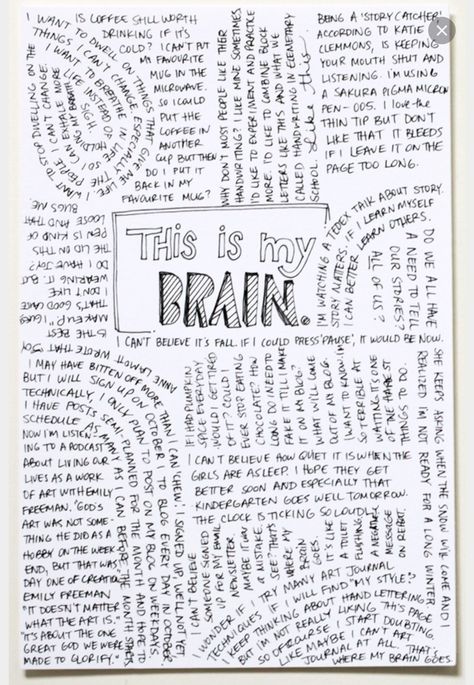 I WANT TO STOP DWELLING ON THE
THINGS I CAN'T CHANGE.
I WANT TO DWELL ON THINGS THAT
I CAN'T CHANGE ESPECIALLY THE
I WANT TO BREATHE IN LIFE
LIFE INSTEAD OF
SIGH.
IS COFFEE STILL WORTH
DRINKING IF IT'S
COLD? I CAN'T PUT
MY FAVOURITE
MUG IN THE
MICROWAVE.
SO I COULD
PUT THE
COFFEE IN
ANOTHER
CUP BUT THEN
DO I PUT IT
BACK IN MY
FAVOURITE MUG?
WHY DON'T MOST PEOPLE LIKE THEIR
HANDWRITING? I LIKE MINE SOMETIMES.
I'D LIKE TO EXPERIMENT AND PRACTICE
MORE. I'D LIKE TO COMBINE BLOCK
LETTERS LIKE THIS AND WHAT WE
CALLED HANDWRITING IN ELEMENTARY
SCHOOL. Like this.
BEING A 'STORY CATCHER'
ACCORDING TO KATIE
CLEMMONS, IS KEEPING
YOUR MOUTH SHUT AND
LISTENING. I'M USING
A SAKURA PIGMA MICRON
PEN-005. I LOVE THE
THIN TIP BUT DON'T
LIKE THAT IT BLEEDS
IF I LEAVE IT ON THE
PAGE TOO LONG.
I'M WATCHING A TEDEX TALK ABOUT STORY.
STORY MATTERS. IF I LEARN MYSELF
I CAN BETTER LEARN OTHERS.
DO WE ALL HAVE
A NEED TO TELL
OUR STORIES?
ALL OF US?
THIS IS MY
BRAIN.
ANNE LAMOTT WROTE THAT "JOY
IS THE BEST
MAKEUP." I GUESS
THAT'S GOOD CAUSE
I DON'T LIKE
WEARING IT. BUT
DO I HAVE JOY?
THE LID ON THIS
PEN IS KIND OF
LOOSE AND THAT
BUGS ME.
I CAN'T BELIEVE IT'S FALL. IF I COULD PRESS 'PAUSE', IT WOULD BE NOW.
I MAY HAVE BITTEN OFF MORE THAN I CAN CHEW: I SIGNED UP,
BUT I WILL SIGN UP ON OCTOBER 1 TO BLOG EVERY DAY
TECHNICALLY, I ONLY PLAN TO POST ON MY BLOG ON WEEKDAYS
I HAVE POSTS SEMI-PLANNED FOR THE MONTH AND HOPE TO
SCHEDULE AS MANY AS I CAN BEFORE THE MONTH STARTS
NOW I'M LISTEN-
ING TO A PODCAST
ABOUT LIVING OUR
LIVES AS A WORK
OF ART WITH EMILY
FREEMAN. "GOD'S
ART WAS NOT SOME-
THING HE DID AS A
HOBBY ON THE WEEK
END, BUT THAT WAS
DAY ONE OF CREATION."
EMILY FREEMAN
"IT DOESN'T MATTER
WHAT THE ART IS."
"IT'S ABOUT THE ONE
GREAT GOD WE WERE
MADE TO GLORIFY."
IF I HAD PUMPKIN
SPICE EVERYDAY
WOULD I GET TIRED
OF IT? COULD I
EVER STOP EATING
CHOCOLATE? HOW
LONG DO I NEED TO
FAKE IT TILL I MAKE
IT ON MY BLOG?
WHAT WILL COME
OUT OF MY BLOG.
I WANT TO KNOW. I'M
SO TERRIBLE AT
WAITING. IT'S ONE
OF THE
THINGS TO DO.
SHE KEEPS ASKING WHEN THE SNOW WILL COME AND I
REALIZED I'M NOT READY FOR A LONG WINTER
I CAN'T BELIEVE HOW QUIET IT IS WHEN THE
GIRLS ARE ASLEEP. I HOPE THEY GET
BETTER SOON AND ESPECIALLY THAT
KINDERGARTEN GOES WELL TOMORROW.
THE CLOCK IS TICKING SO LOUDLY.
IT'S LIKE
A TOILET
FLUSHING.
A NEGATIVE
MESSAGE
ON REPEAT.
I CAN'T BELIEVE
SOMEONE SIGNED
UP FOR MY EMAIL
NEWSLETTER.
MAYBE IT WAS
A MISTAKE.
SEE? THAT'S
WHERE MY
BRAIN
GOES.
I WONDER IF I TRY MANY ART JOURNAL
TECHNIQUES IF I WILL FIND "MY STYLE?"
I KEEP THINKING ABOUT HAND LETTERING
BUT I'M NOT REALLY LIKING THIS PAGE
SO OF COURSE I START DOUBTING
LIKE MAYBE I CAN'T ART
JOURNAL AT ALL. THAT'S
WHERE MY BRAIN GOES